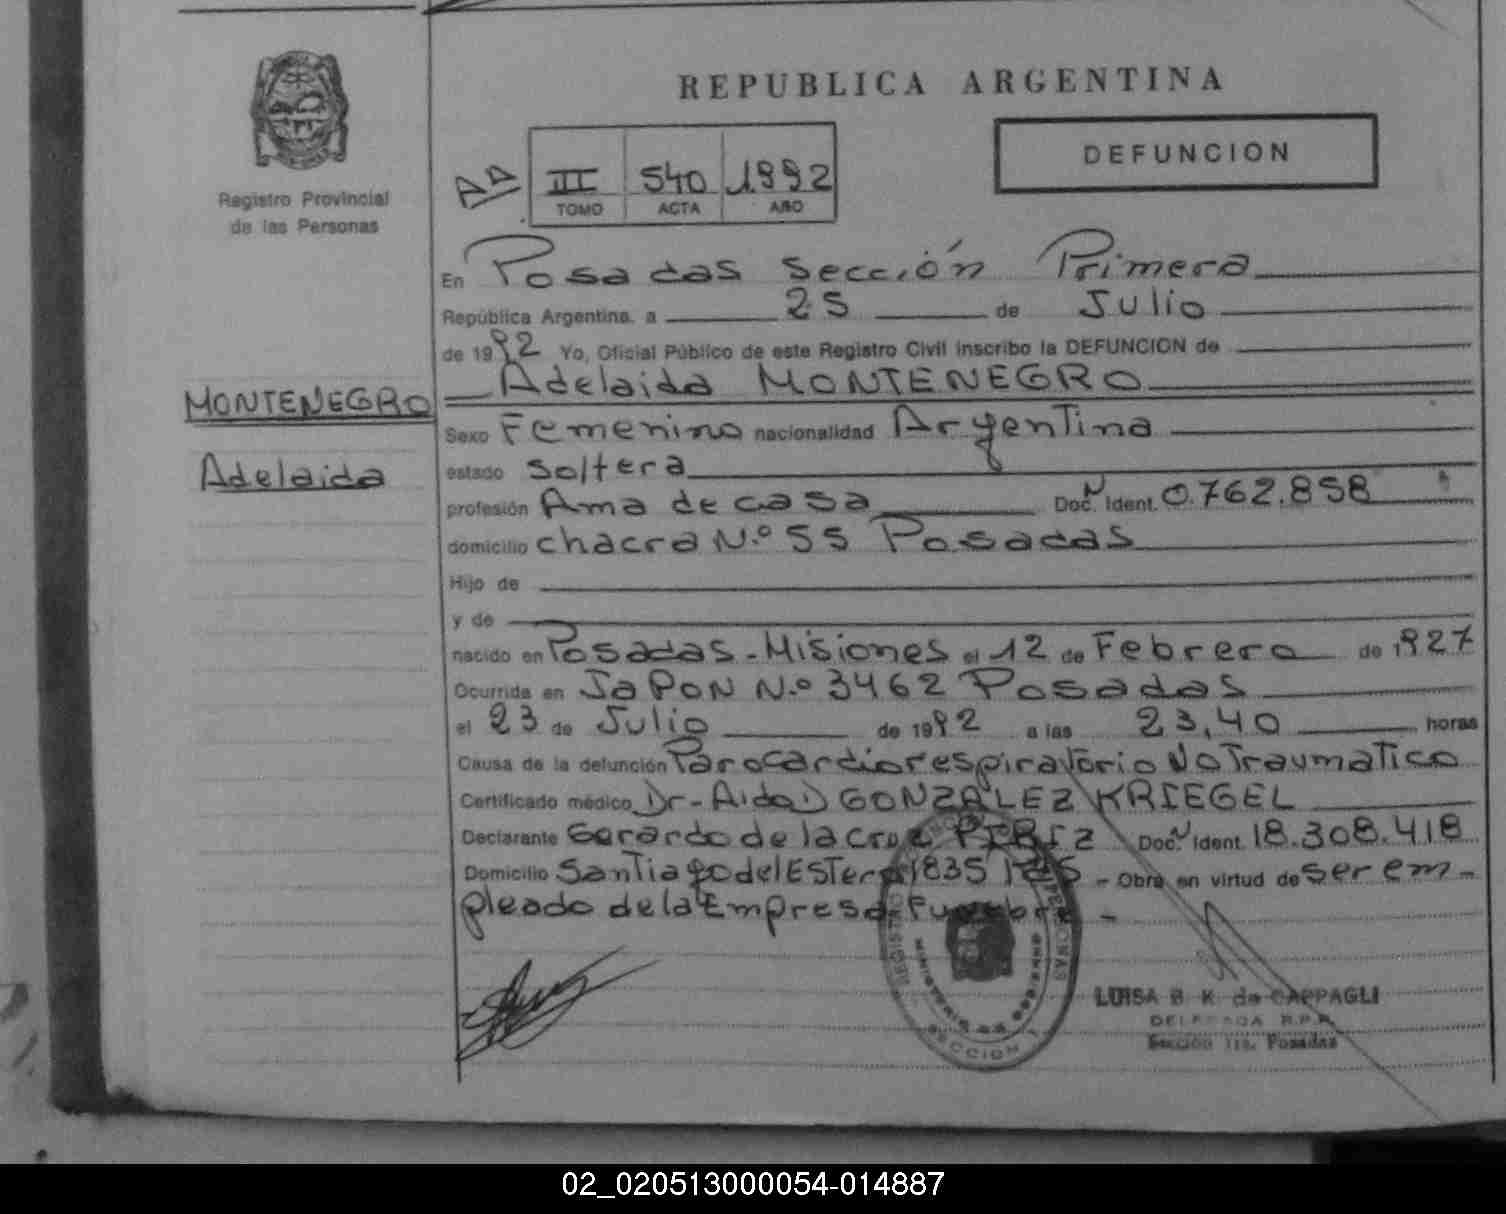 REPUBLICA ARGENTINA
Registro Provincial
de las Personas
III 540 1992
TOMO ACTA AÑO
DEFUNCION
En Posadas Sección Primera
República Argentina, a 25 de Julio
de 1992 Yo, Oficial Público de este Registro Civil inscribo la DEFUNCION de
Adelaida MONTENEGRO
MONTENEGRO
Adelaida
Sexo Femenino nacionalidad Argentina
estado Soltera
profesión Ama de casa Doc. Ident. 0.762.858
domicilio chacra N.º 55 Posadas
Hijo de
y de
nacido en Posadas - Misiones el 12 de Febrero de 1927
Ocurrida en JAPON N.º 3462 Posadas
el 23 de Julio de 1992 a las 23,40 horas
Causa de la defunción Parocardiorespiratorio No Traumatico
Certificado médico Dr - Aldo D GONZALEZ KRIEGEL
Declarante Gerardo de la Cruz Doc. Ident. 18.308.418
Domicilio Santiago del Estero 1835 - Obra en virtud de ser em-
pleado de la Empresa Funebre -
REGISTRO
SECCION 1
LUISA B. K. de CAPPAGLI
DELEGADA R.P.P.
Sección 1ra. Posadas
02_020513000054-014887